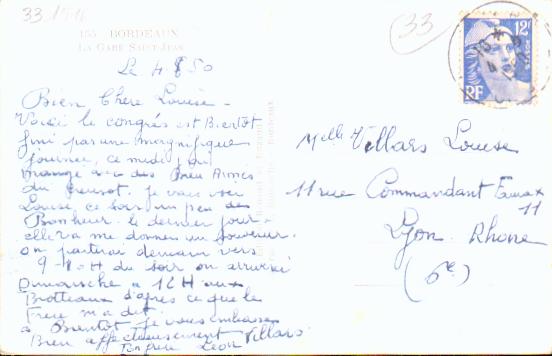 33 154
155 BORDEAUX
LA GARE SAINT-JEAN
33
12F
POSTES
RF
Le 4 8 50
Bien Chere Louise -
Voici le congrés est Bientot
fini par une magnifique
journée, ce midi j'ai
mangé avec des
du Creusot. je vais voir
Louise ce soir un peu de
Bonheur. le dernier jour
elle va me donner un souvenir.
on partirai demain vers
9-10 H du soir on arrivrai
Dimanche a 12 H aux
Brotteaux d'après ce que le
Frere m'a dit.
a Bientot je vous embrasse
Bien affectueusement
ton frere Léon Villars
Melle Villars Louise
11 rue Commandant
11
Lyon. Rhone
(6e)